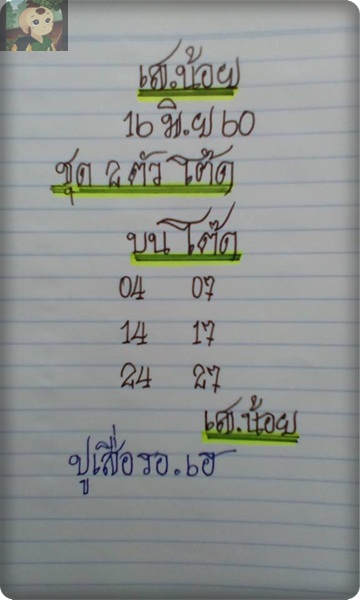 เส.น้อย
16 มิ.ย 60
ชุด 2 ตัว โต๊ด
บน โต๊ด
04 07
14 17
24 27
เส.น้อย
ปูเสื่อรอ.เฮ